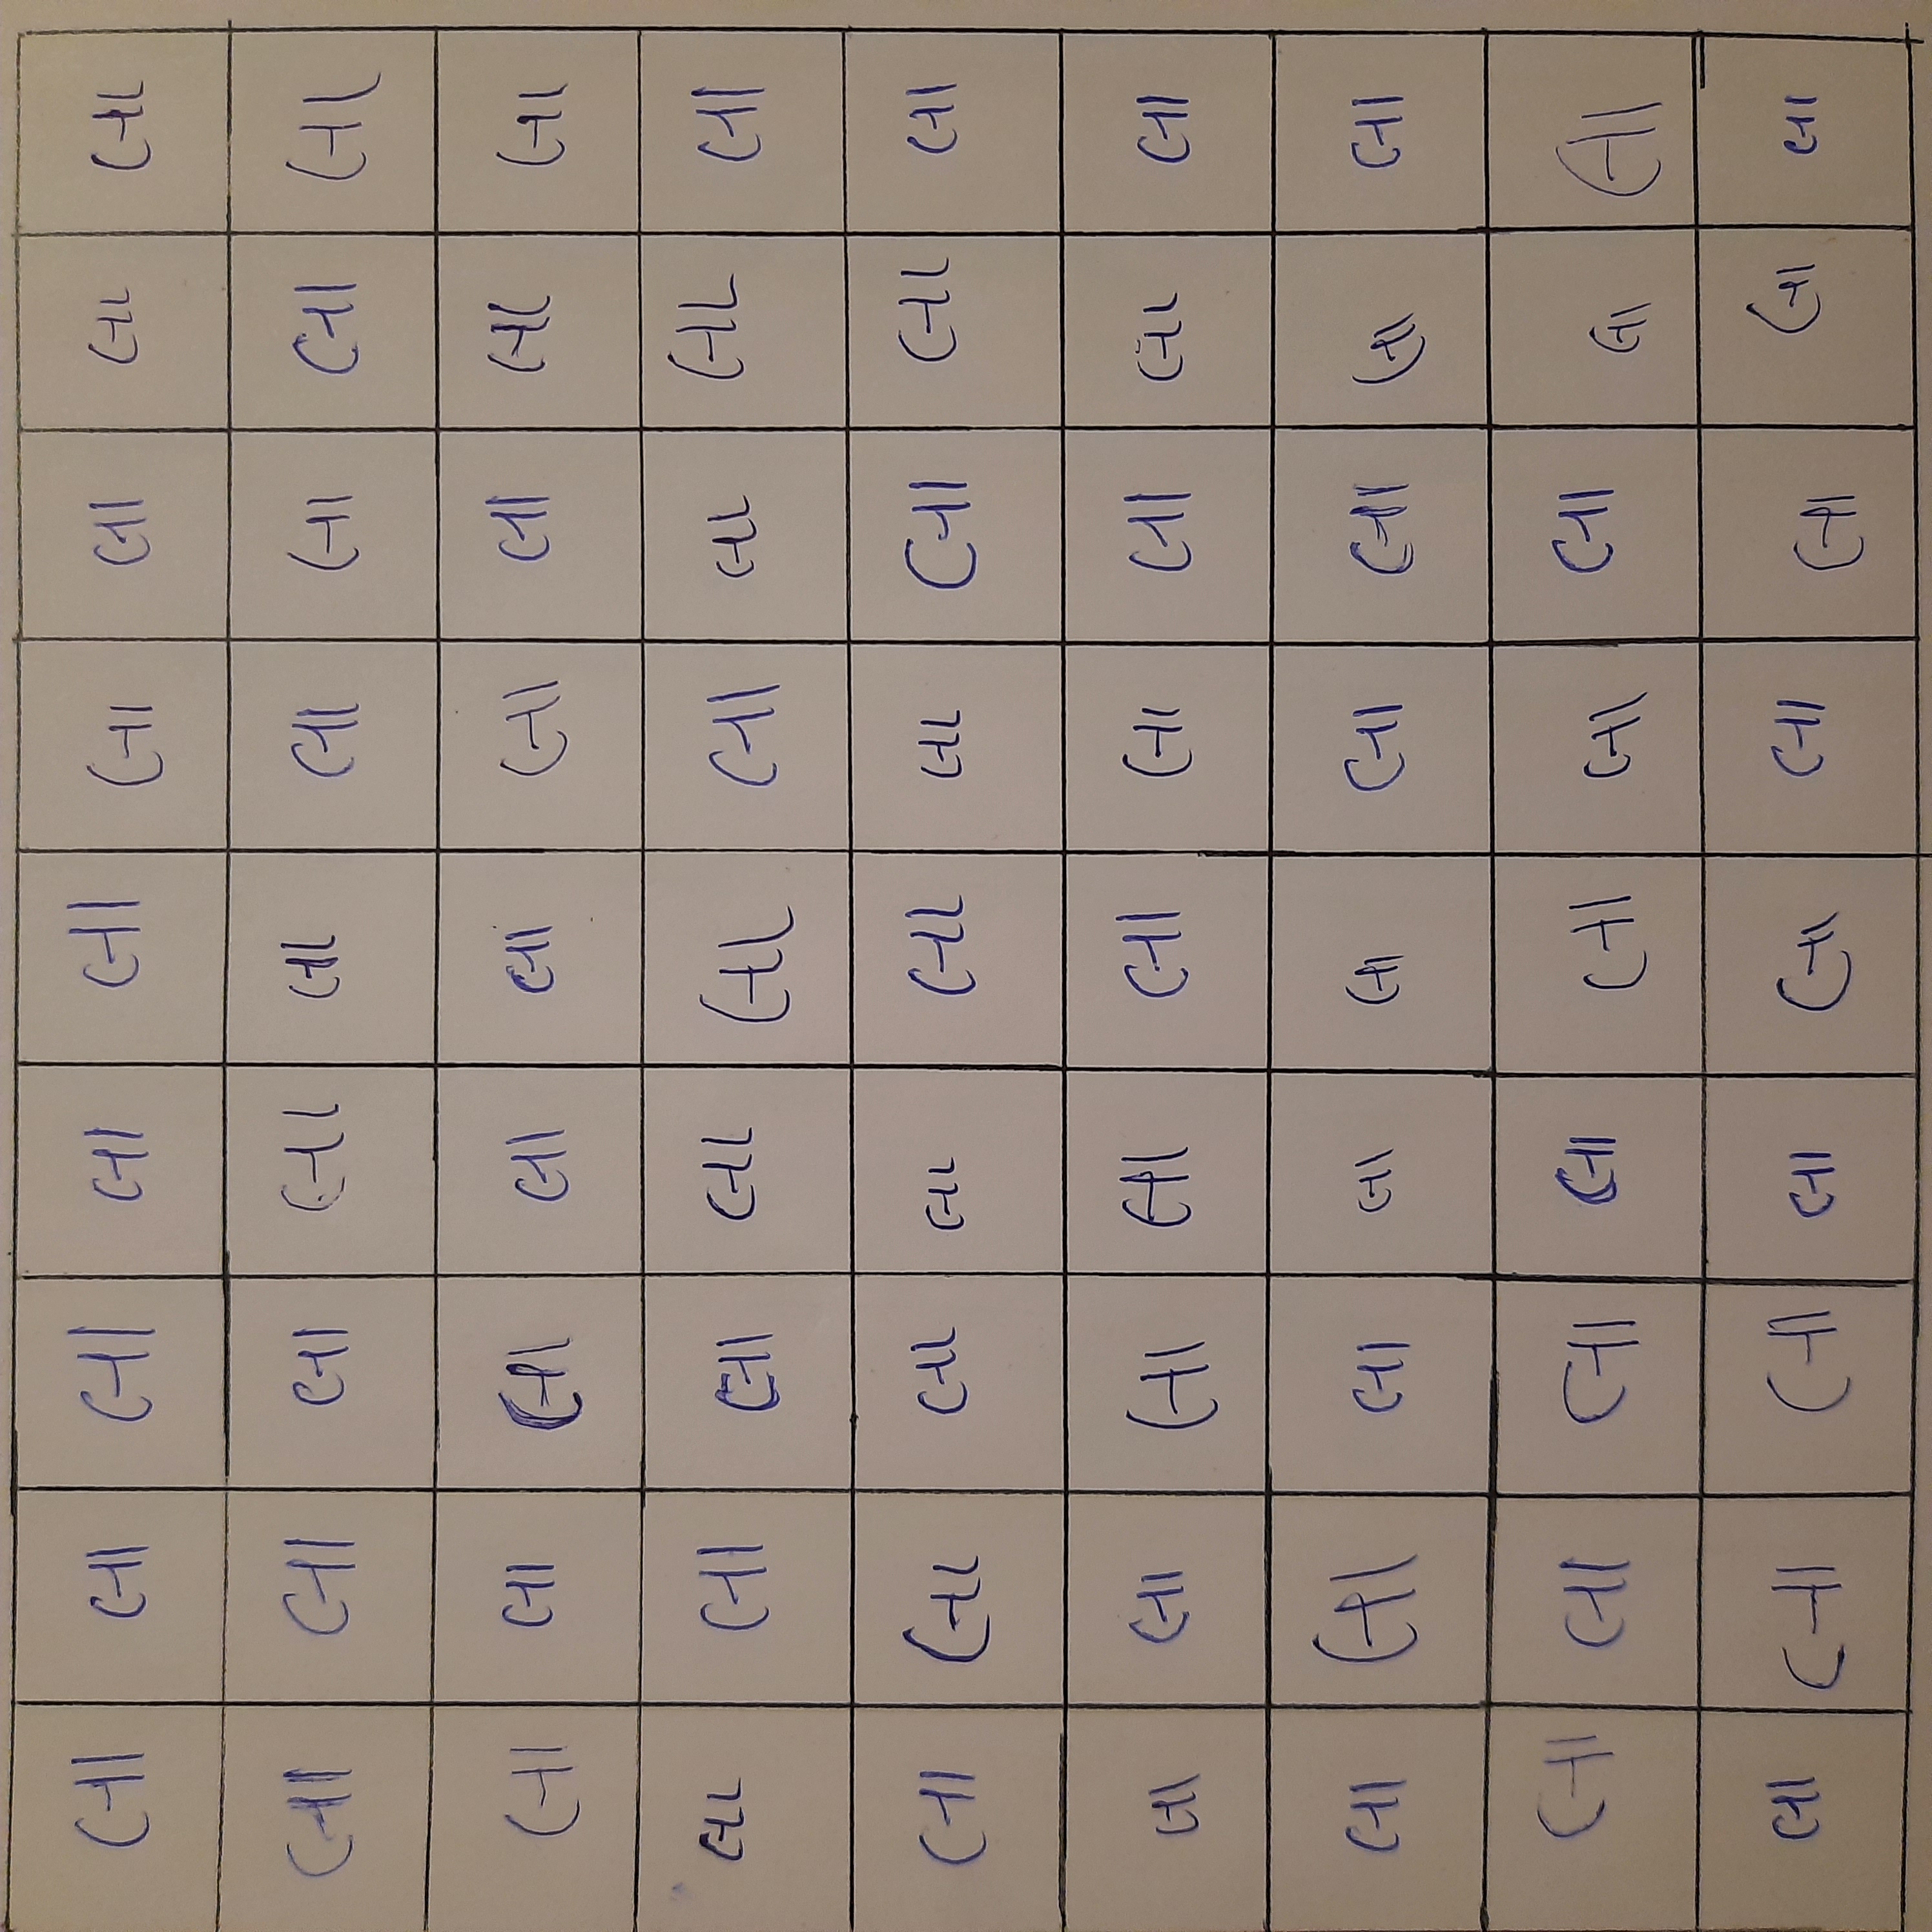 લા લા લા લા લા લા લા લા લા
લા લા લા લા લા લા લા લા લા
લા લા લા લા લા લા લા લા લા
લા લા લા લા લા લા લા લા લા
લા લા લા લા લા લા લા લા લા
લા લા લા લા લા લા લા લા લા
લા લા લા લા લા લા લા લા લા
લા લા લા લા લા લા લા લા લા
લા લા લા લા લા લા લા લા લા